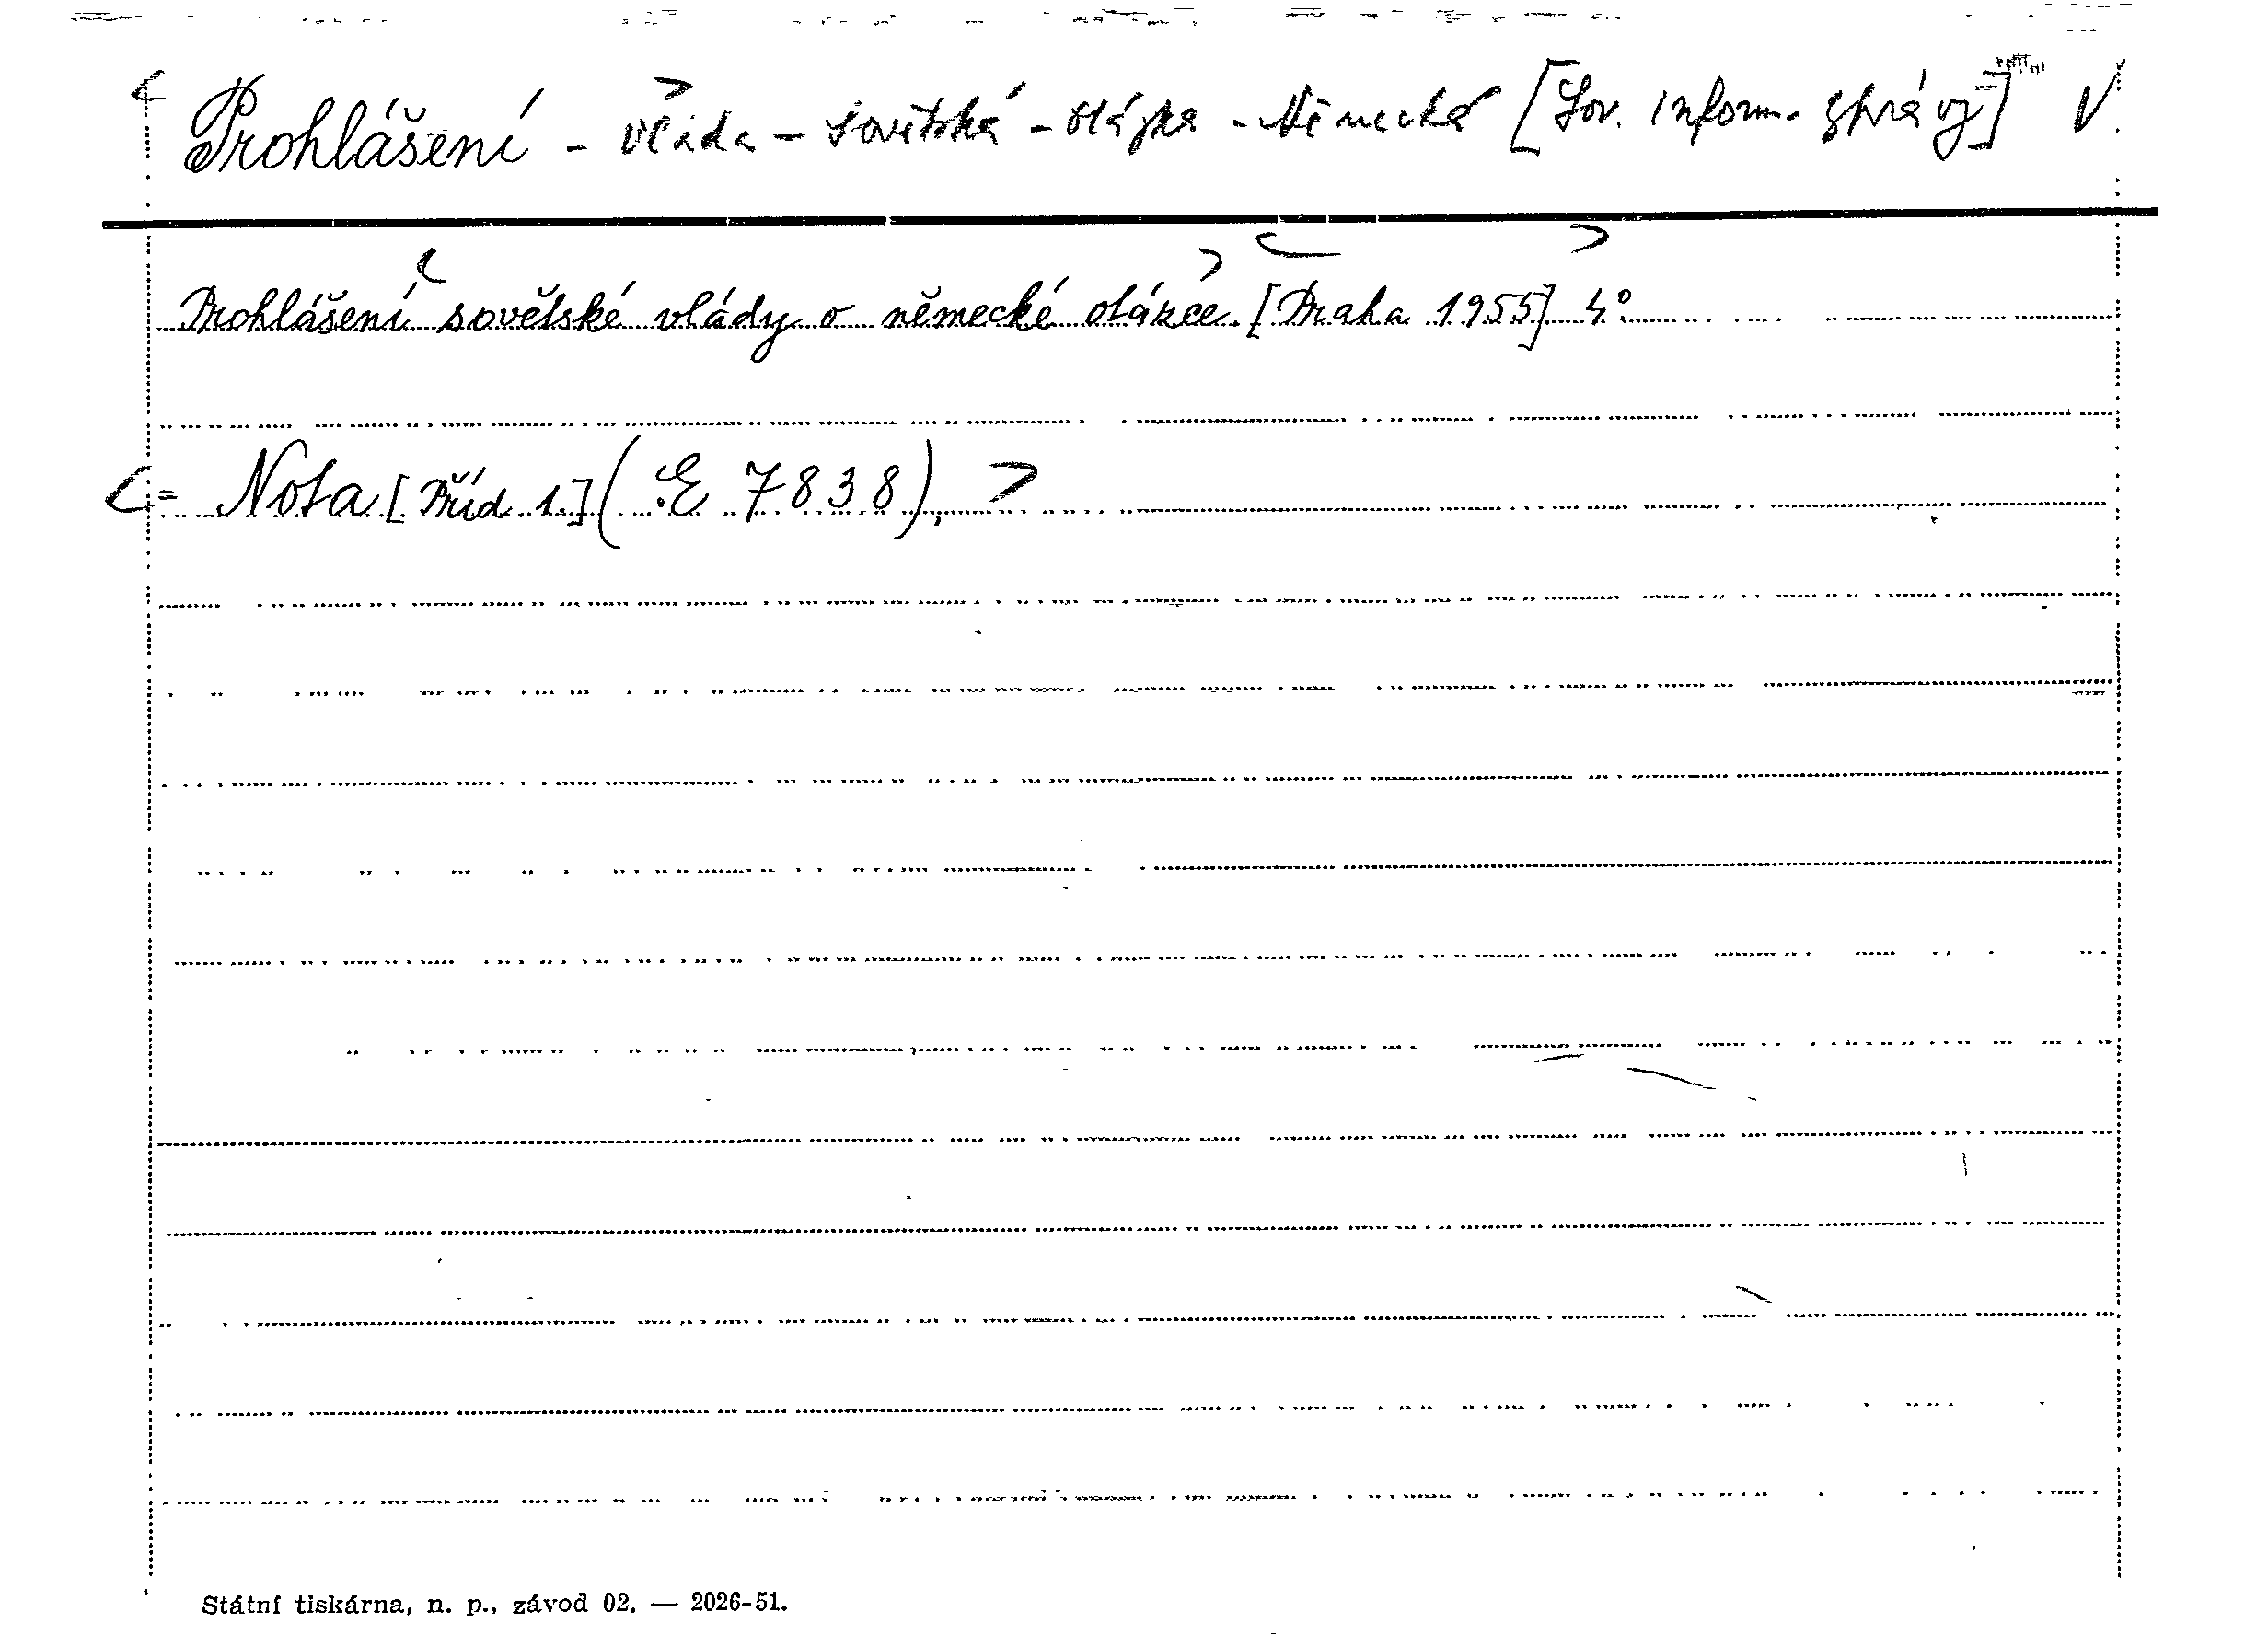 < Prohlášení - vláda > - sovětská - otázka - Německá [Sov. inform. zprávy] V.
Prohlášení < sovětské vlády o německé otázce. > [Praha 1955] 4°
< = Nota [Příd 1.] (: E 7838). >
Státní tiskárna, n. p., závod 02. — 2026-51.